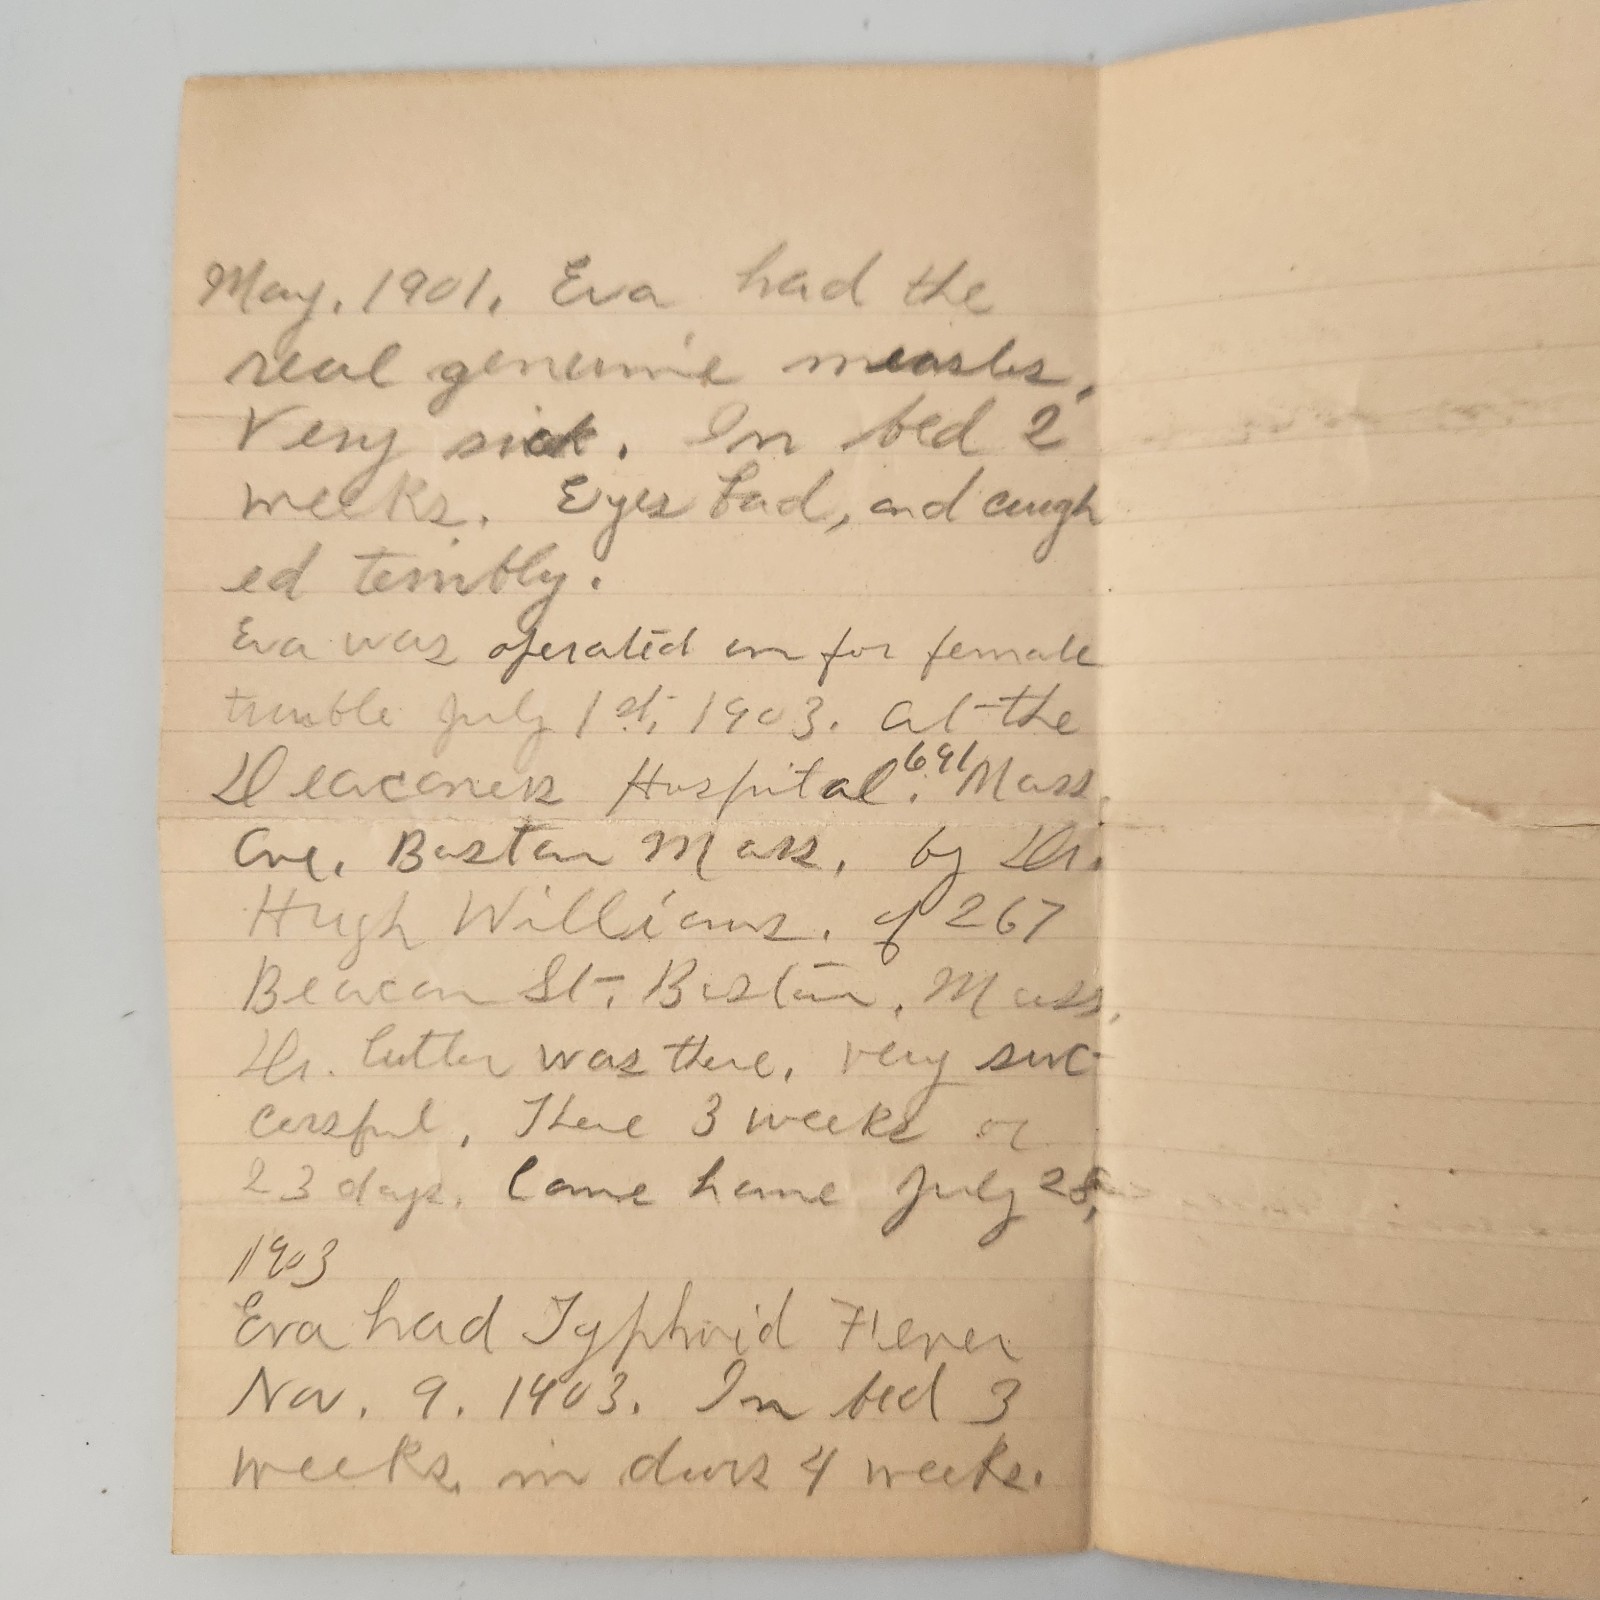 May, 1901. Eva had the
real genuine measles,
Very sick. In bed 2
weeks. Eyes bad, and cough
ed terribly.
Eva was operated on for female
trouble July 1st, 1903. at the
Deaconess Hospital. 691 Mass.
Ave. Boston Mass. by Dr.
Hugh Williams. of 267
Beacon St. Boston, Mass.
Dr. Cutler was there, very suc-
cessful. There 3 weeks or
23 days. Came home July 28,
1903
Eva had Typhoid Fever
Nov. 9. 1903. In bed 3
weeks, in doors 4 weeks.